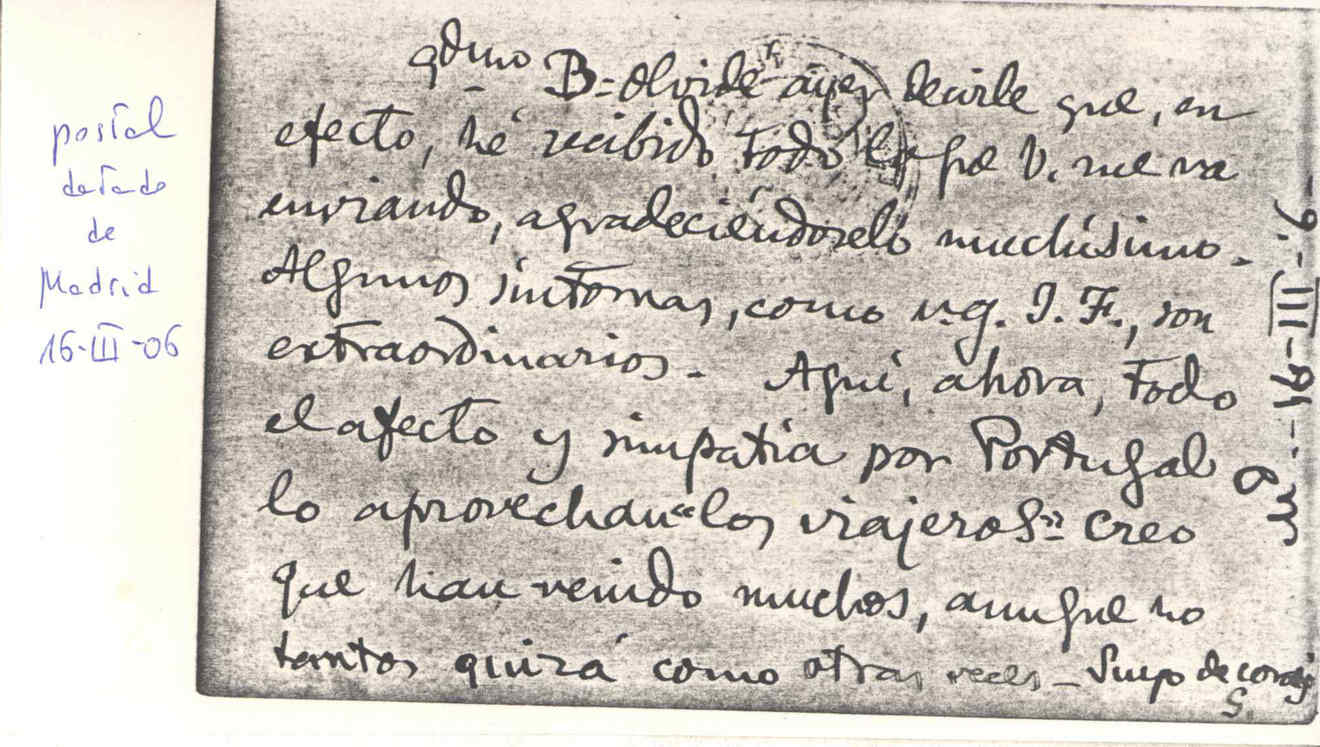 postal
datado
de
Madrid
16-III-06
qdmo B = olvidé ayer decirle que, en
efecto, hé recibido todo lo que V. me va
enviando, agradeciéndoselo muchísimo.
Algunos síntomas, como v.g. I. F., son
extraordinarios. - Aquí, ahora, todo
el afecto y simpatía por Portugal
lo aprovechan "los viajeros" = Creo
que han venido muchos, aunque no
tantos quizá como otras veces - Suyo de
S.